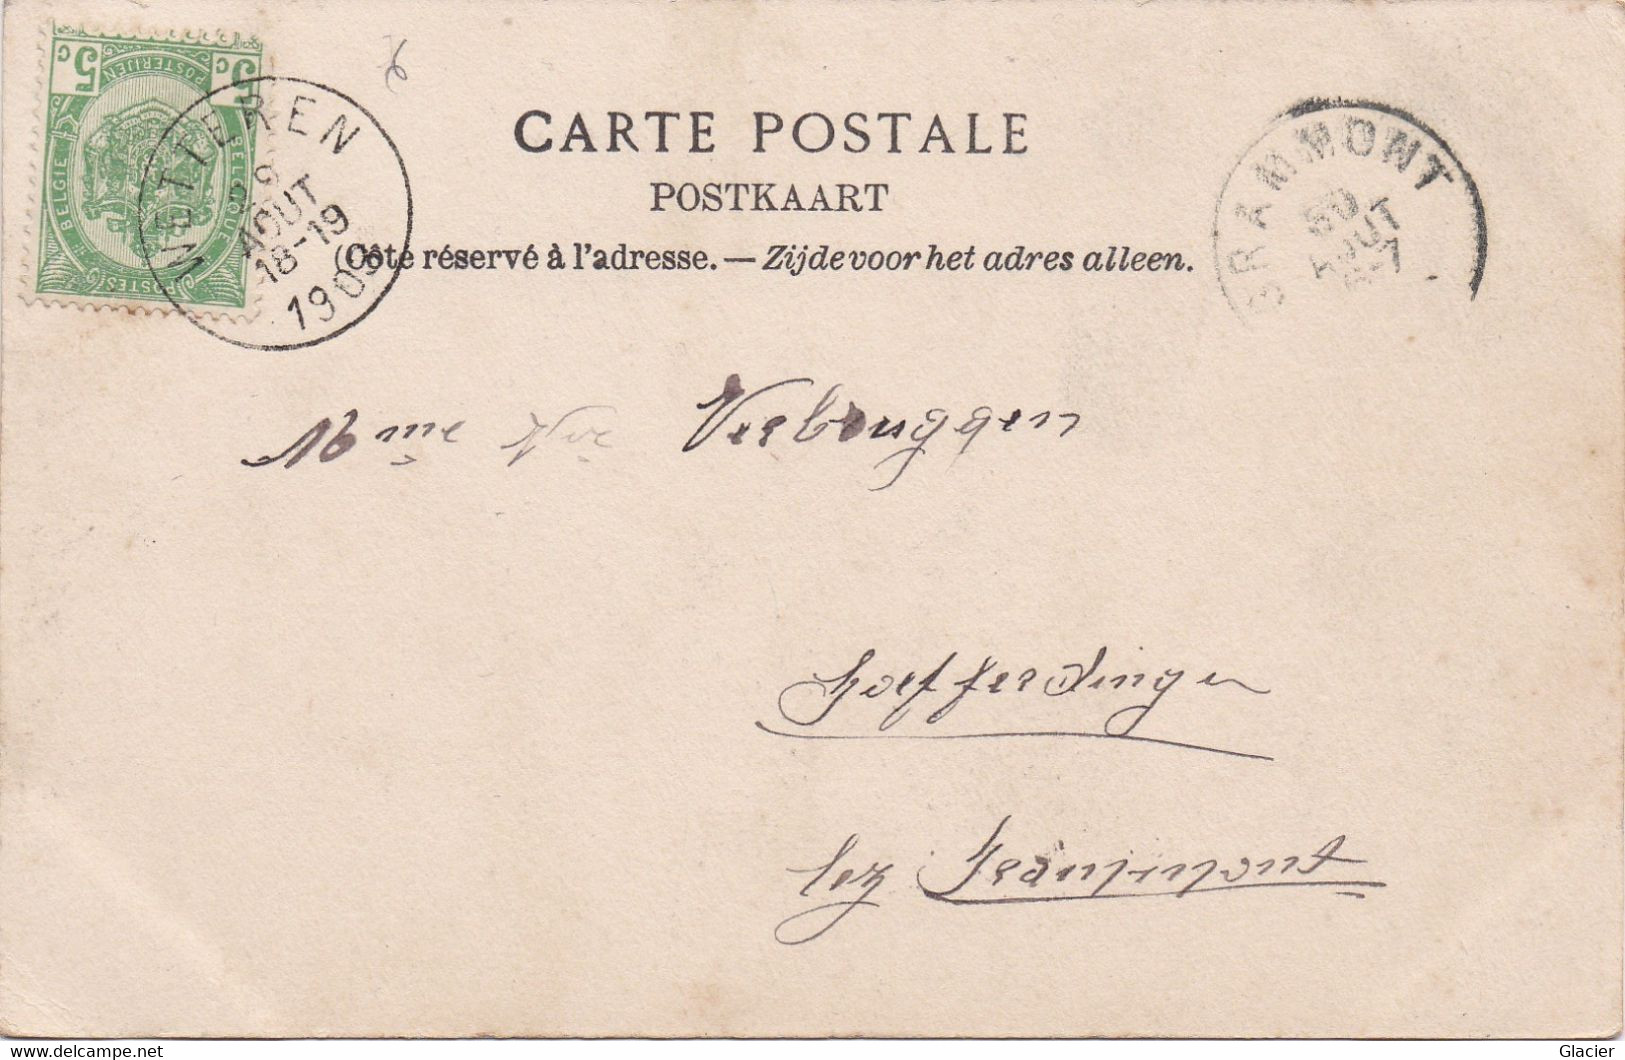 5c 5c
POSTERIJEN
BELGIE BELGIQUE
POSTES
WETTEREN
29
AOUT
18-19
190
6
CARTE POSTALE
POSTKAART
(Côté réservé à l'adresse. — Zijde voor het adres alleen.
GRAMMONT
30
AOUT
6-7
Mme Vve Verbruggen
Goefferdingen
lez Grammont
Glacier
www.delcampe.net